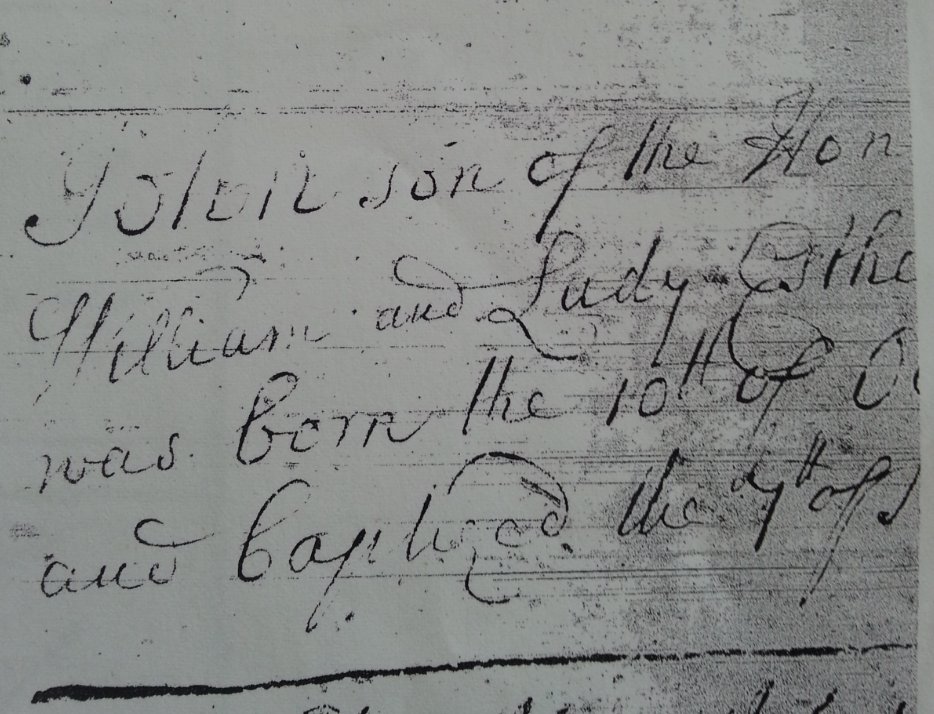 son of the Hon
William and Lady Esthe
was born the 10th of Oc
and baptized the 7th of